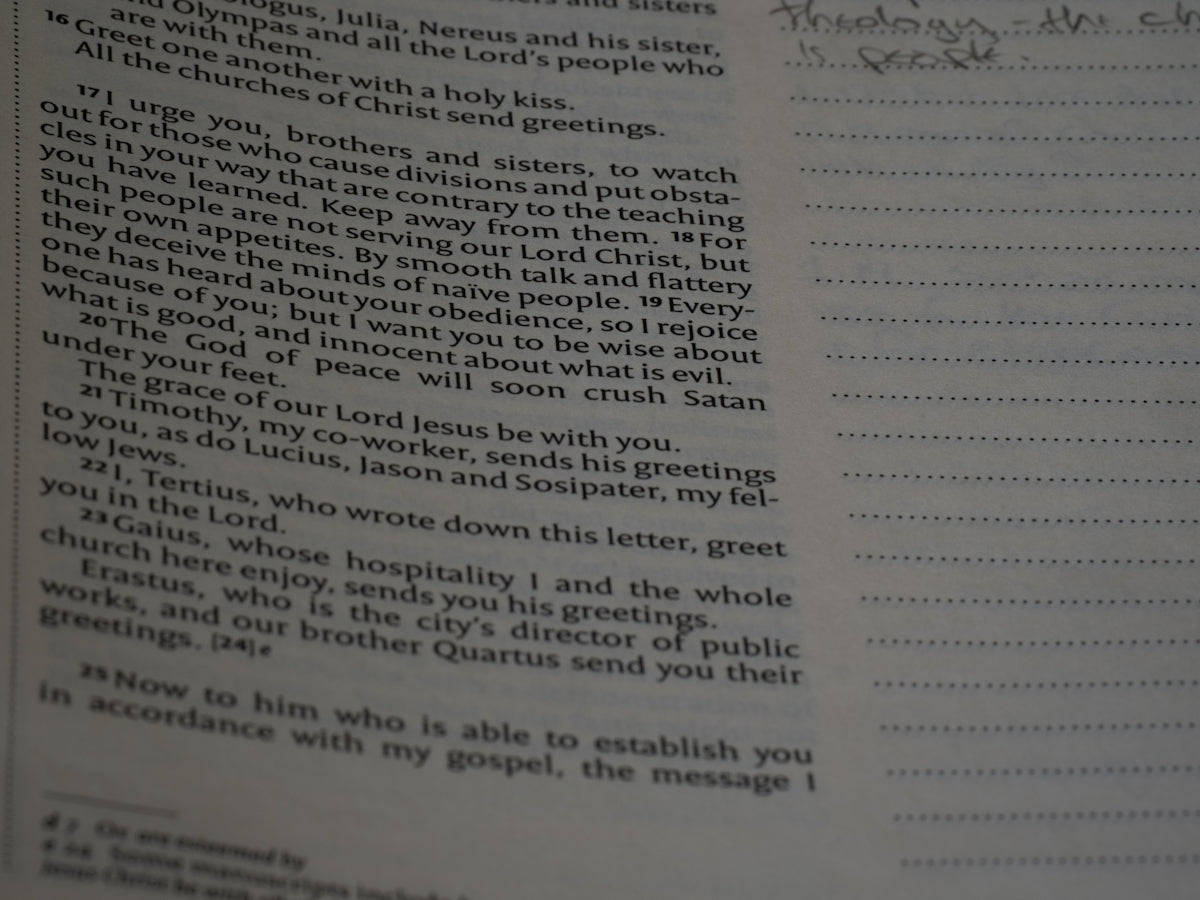 and sisters
logus, Julia, Nereus and his sister,
Olympas and all the Lord's people who
are with them.
16 Greet one another with a holy kiss.
All the churches of Christ send greetings.
17 I urge you, brothers and sisters, to watch
out for those who cause divisions and put obsta-
cles in your way that are contrary to the teaching
you have learned. Keep away from them. 18 For
such people are not serving our Lord Christ, but
their own appetites. By smooth talk and flattery
they deceive the minds of naïve people. 19 Every-
one has heard about your obedience, so I rejoice
because of you; but I want you to be wise about
what is good, and innocent about what is evil.
20 The God of peace will soon crush Satan
under your feet.
The grace of our Lord Jesus be with you.
21 Timothy, my co-worker, sends his greetings
to you, as do Lucius, Jason and Sosipater, my fel-
low Jews.
22 I, Tertius, who wrote down this letter, greet
you in the Lord.
23 Gaius, whose hospitality I and the whole
church here enjoy, sends you his greetings.
Erastus, who is the city's director of public
works, and our brother Quartus send you their
greetings. [24] e
25 Now to him who is able to establish you
in accordance with my gospel, the message I
d 7 Or are esteemed by
e 24 Some manuscripts include
Jesus Christ be with
theology - the
is people.